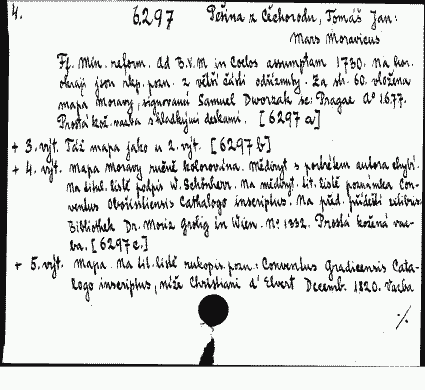 4. 6.297 Pešina z Čechorodu, Tomáš Jan:
Mars Moravicus
Ff. Min. reform. ad B.V.M in Coelos assumptam 1730. Na hor.
okraji jsou rkp. pozn. z větší části odříznuty. Za str. 60. vložena
mapa Moravy, signovaná Samuel Dworzak sc. Pragae Aº 1677.
Prostá kož. vazba s hladkými deskami. [6297a]
+ 3. výt. Táž mapa jako u 2. výt. [6297b]
+ 4. výt. Mapa Moravy ručně kolorována. Mědiryt s portrétem autora chybí.
Na titul. listě podpis W. Schönherr. Na mědiryt. tit. listě poznámka Con-
ventus Obořistiensis Cathalogo inscriptus. Na před. přídeští exlibris
Bibliothek Dr. Moriz Grolig in Wien. Nº 1332. Prostá kožená vaz-
ba. [6297c.]
+ 5. výt. Mapa. Na tit. listě rukopis. pozn.: Conventus Gradicensis Cata-
logo inscriptus, níže Christiani d'Elvert Decemb. 1820. Vazba
./.